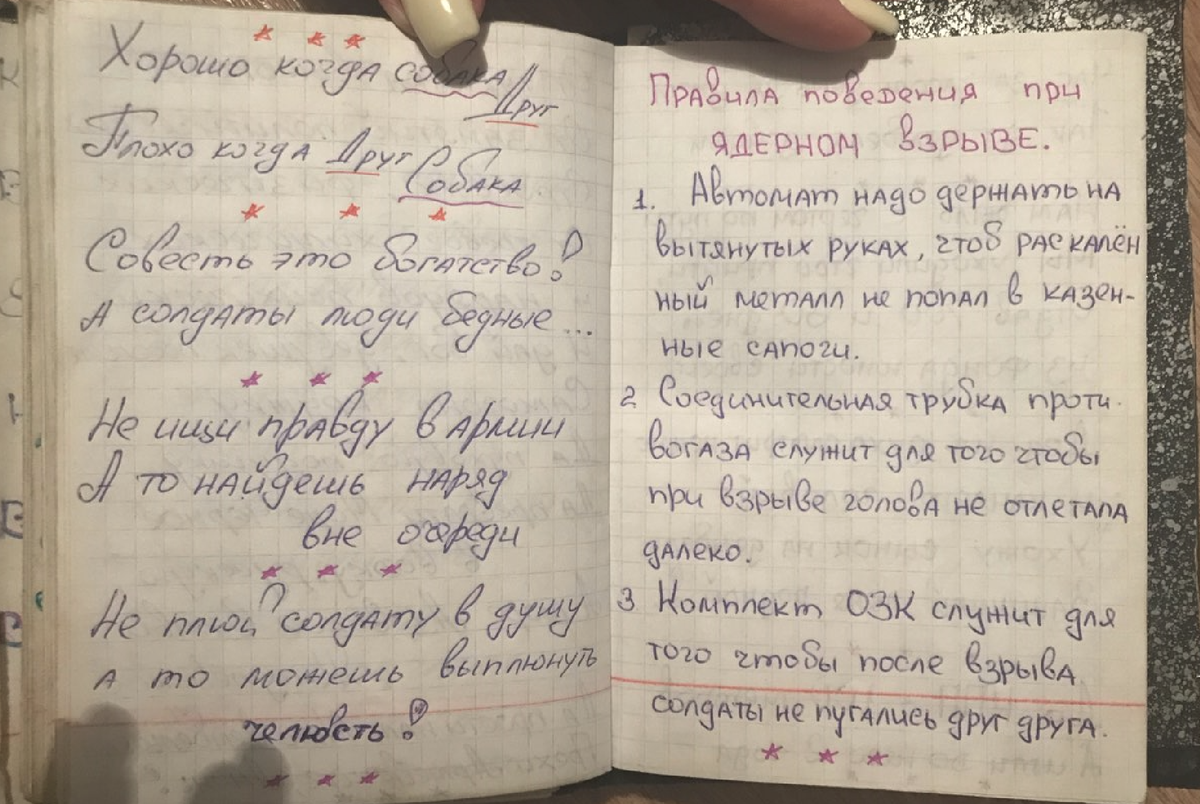 Хорошо когда собака
Друг
Плохо когда Друг
Собака
Совесть это богатство!
А солдаты люди бедные...
Не ищи правду в армии
А то найдешь наряд
вне очереди
Не плюй солдату в душу
а то можешь выплюнуть
челюсть!
Правила поведения при
ядерном взрыве.
1. Автомат надо держать на
вытянутых руках, чтоб раскалён
ный металл не попал в казен-
ные сапоги.
2 Соединительная трубка проти-
вогаза служит для того чтобы
при взрыве голова не отлетала
далеко.
3 Комплект ОЗК служит для
того чтобы после взрыва
солдаты не пугались друг друга.